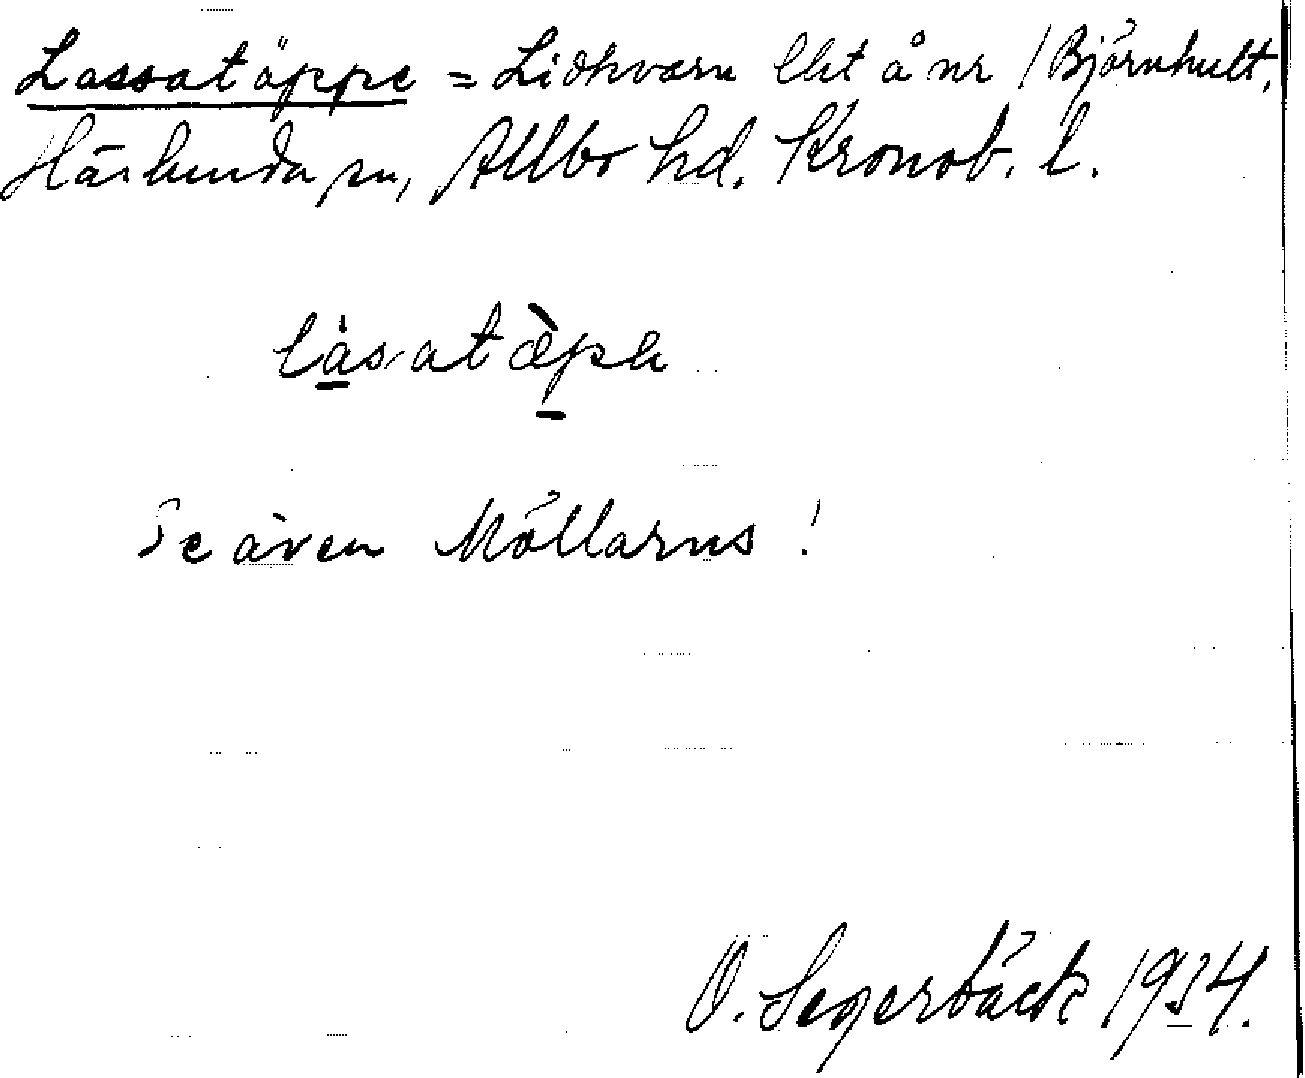 Lassatäppe = Lidhvarn Ebt å nr 1 Björnhult,
Härlunda sn, Allbo hd. Kronob. l.
låsatæpa
Se även Möllarns!
O. Segerbäck 1934.